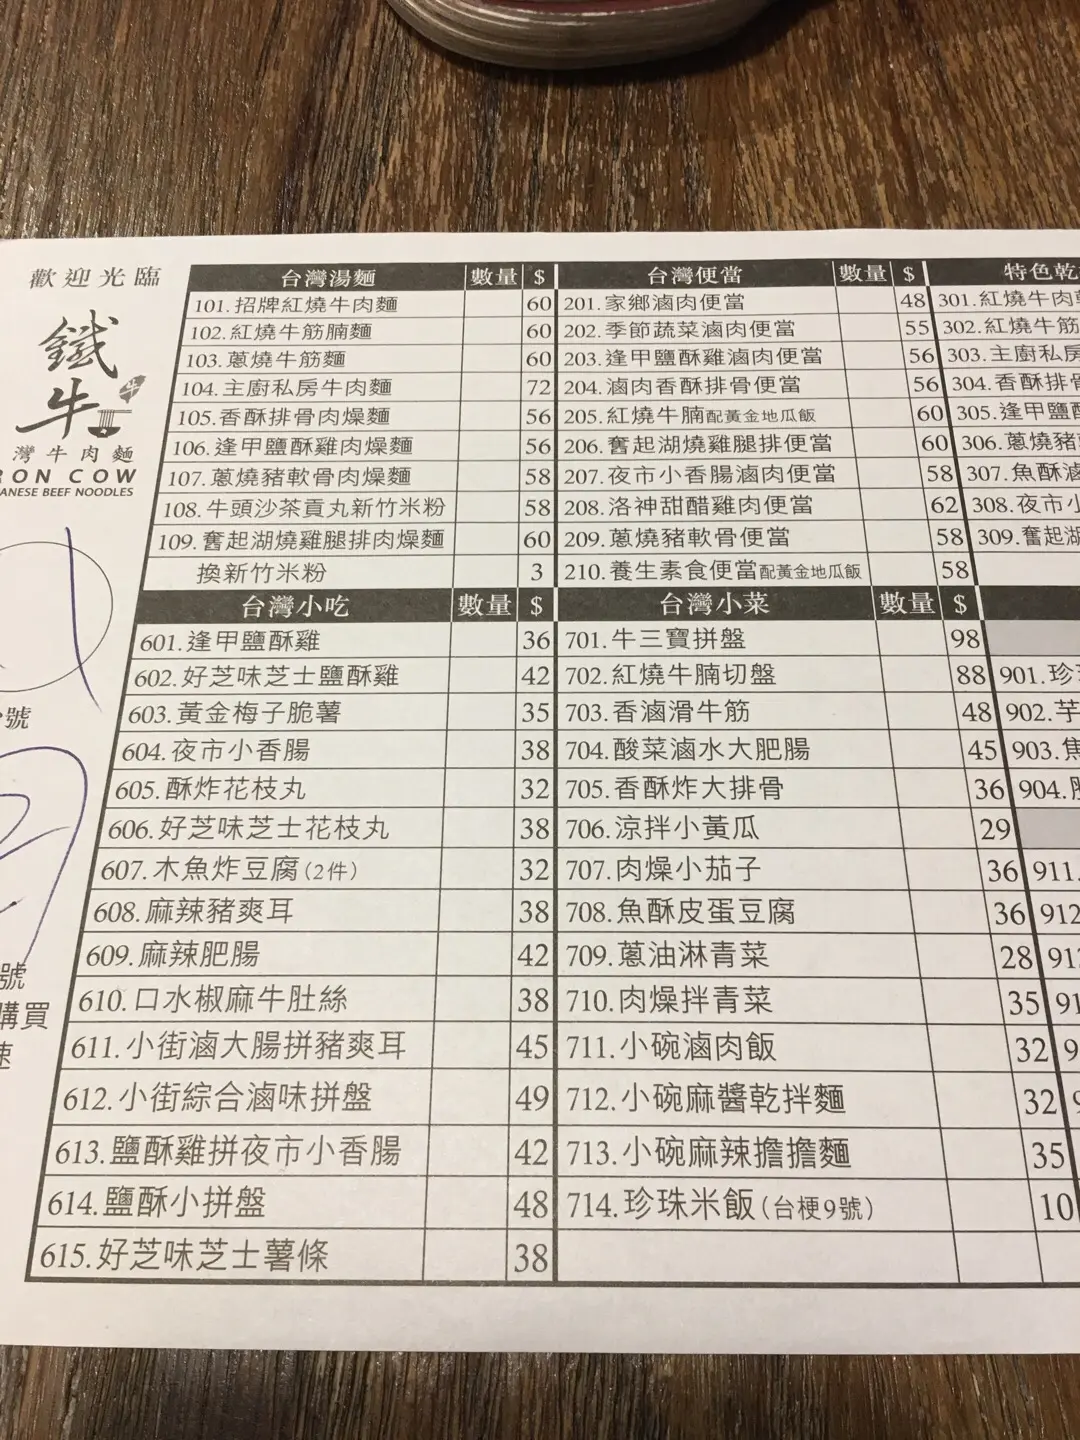 歡迎光臨
鐵牛
灣牛肉麵
RON COW
ANESE BEEF NOODLES
號
號
購買
速
台灣湯麵 數量 $
101.招牌紅燒牛肉麵 60
102.紅燒牛筋腩麵 60
103.蔥燒牛筋麵 60
104.主廚私房牛肉麵 72
105.香酥排骨肉燥麵 56
106.逢甲鹽酥雞肉燥麵 56
107.蔥燒豬軟骨肉燥麵 58
108.牛頭沙茶貢丸新竹米粉 58
109.奮起湖燒雞腿排肉燥麵 60
換新竹米粉 3
台灣便當 數量 $
201.家鄉滷肉便當 48
202.季節蔬菜滷肉便當 55
203.逢甲鹽酥雞滷肉便當 56
204.滷肉香酥排骨便當 56
205.紅燒牛腩配黃金地瓜飯 60
206.奮起湖燒雞腿排便當 60
207.夜市小香腸滷肉便當 58
208.洛神甜醋雞肉便當 62
209.蔥燒豬軟骨便當 58
210.養生素食便當配黃金地瓜飯 58
特色乾
301.紅燒牛肉
302.紅燒牛筋
303.主廚私房
304.香酥排骨
305.逢甲鹽
306.蔥燒豬
307.魚酥滷
308.夜市小
309.奮起湖
台灣小吃 數量 $
601.逢甲鹽酥雞 36
602.好芝味芝士鹽酥雞 42
603.黃金梅子脆薯 35
604.夜市小香腸 38
605.酥炸花枝丸 32
606.好芝味芝士花枝丸 38
607.木魚炸豆腐(2件) 32
608.麻辣豬爽耳 38
609.麻辣肥腸 42
610.口水椒麻牛肚絲 38
611.小街滷大腸拼豬爽耳 45
612.小街綜合滷味拼盤 49
613.鹽酥雞拼夜市小香腸 42
614.鹽酥小拼盤 48
615.好芝味芝士薯條 38
台灣小菜 數量 $
701.牛三寶拼盤 98
702.紅燒牛腩切盤 88
703.香滷滑牛筋 48
704.酸菜滷水大肥腸 45
705.香酥炸大排骨 36
706.涼拌小黃瓜 29
707.肉燥小茄子 36
708.魚酥皮蛋豆腐 36
709.蔥油淋青菜 28
710.肉燥拌青菜 35
711.小碗滷肉飯 32
712.小碗麻醬乾拌麵 32
713.小碗麻辣擔擔麵 35
714.珍珠米飯(台梗9號) 10
901.珍
902.芋
903.焦
904.
911.
912